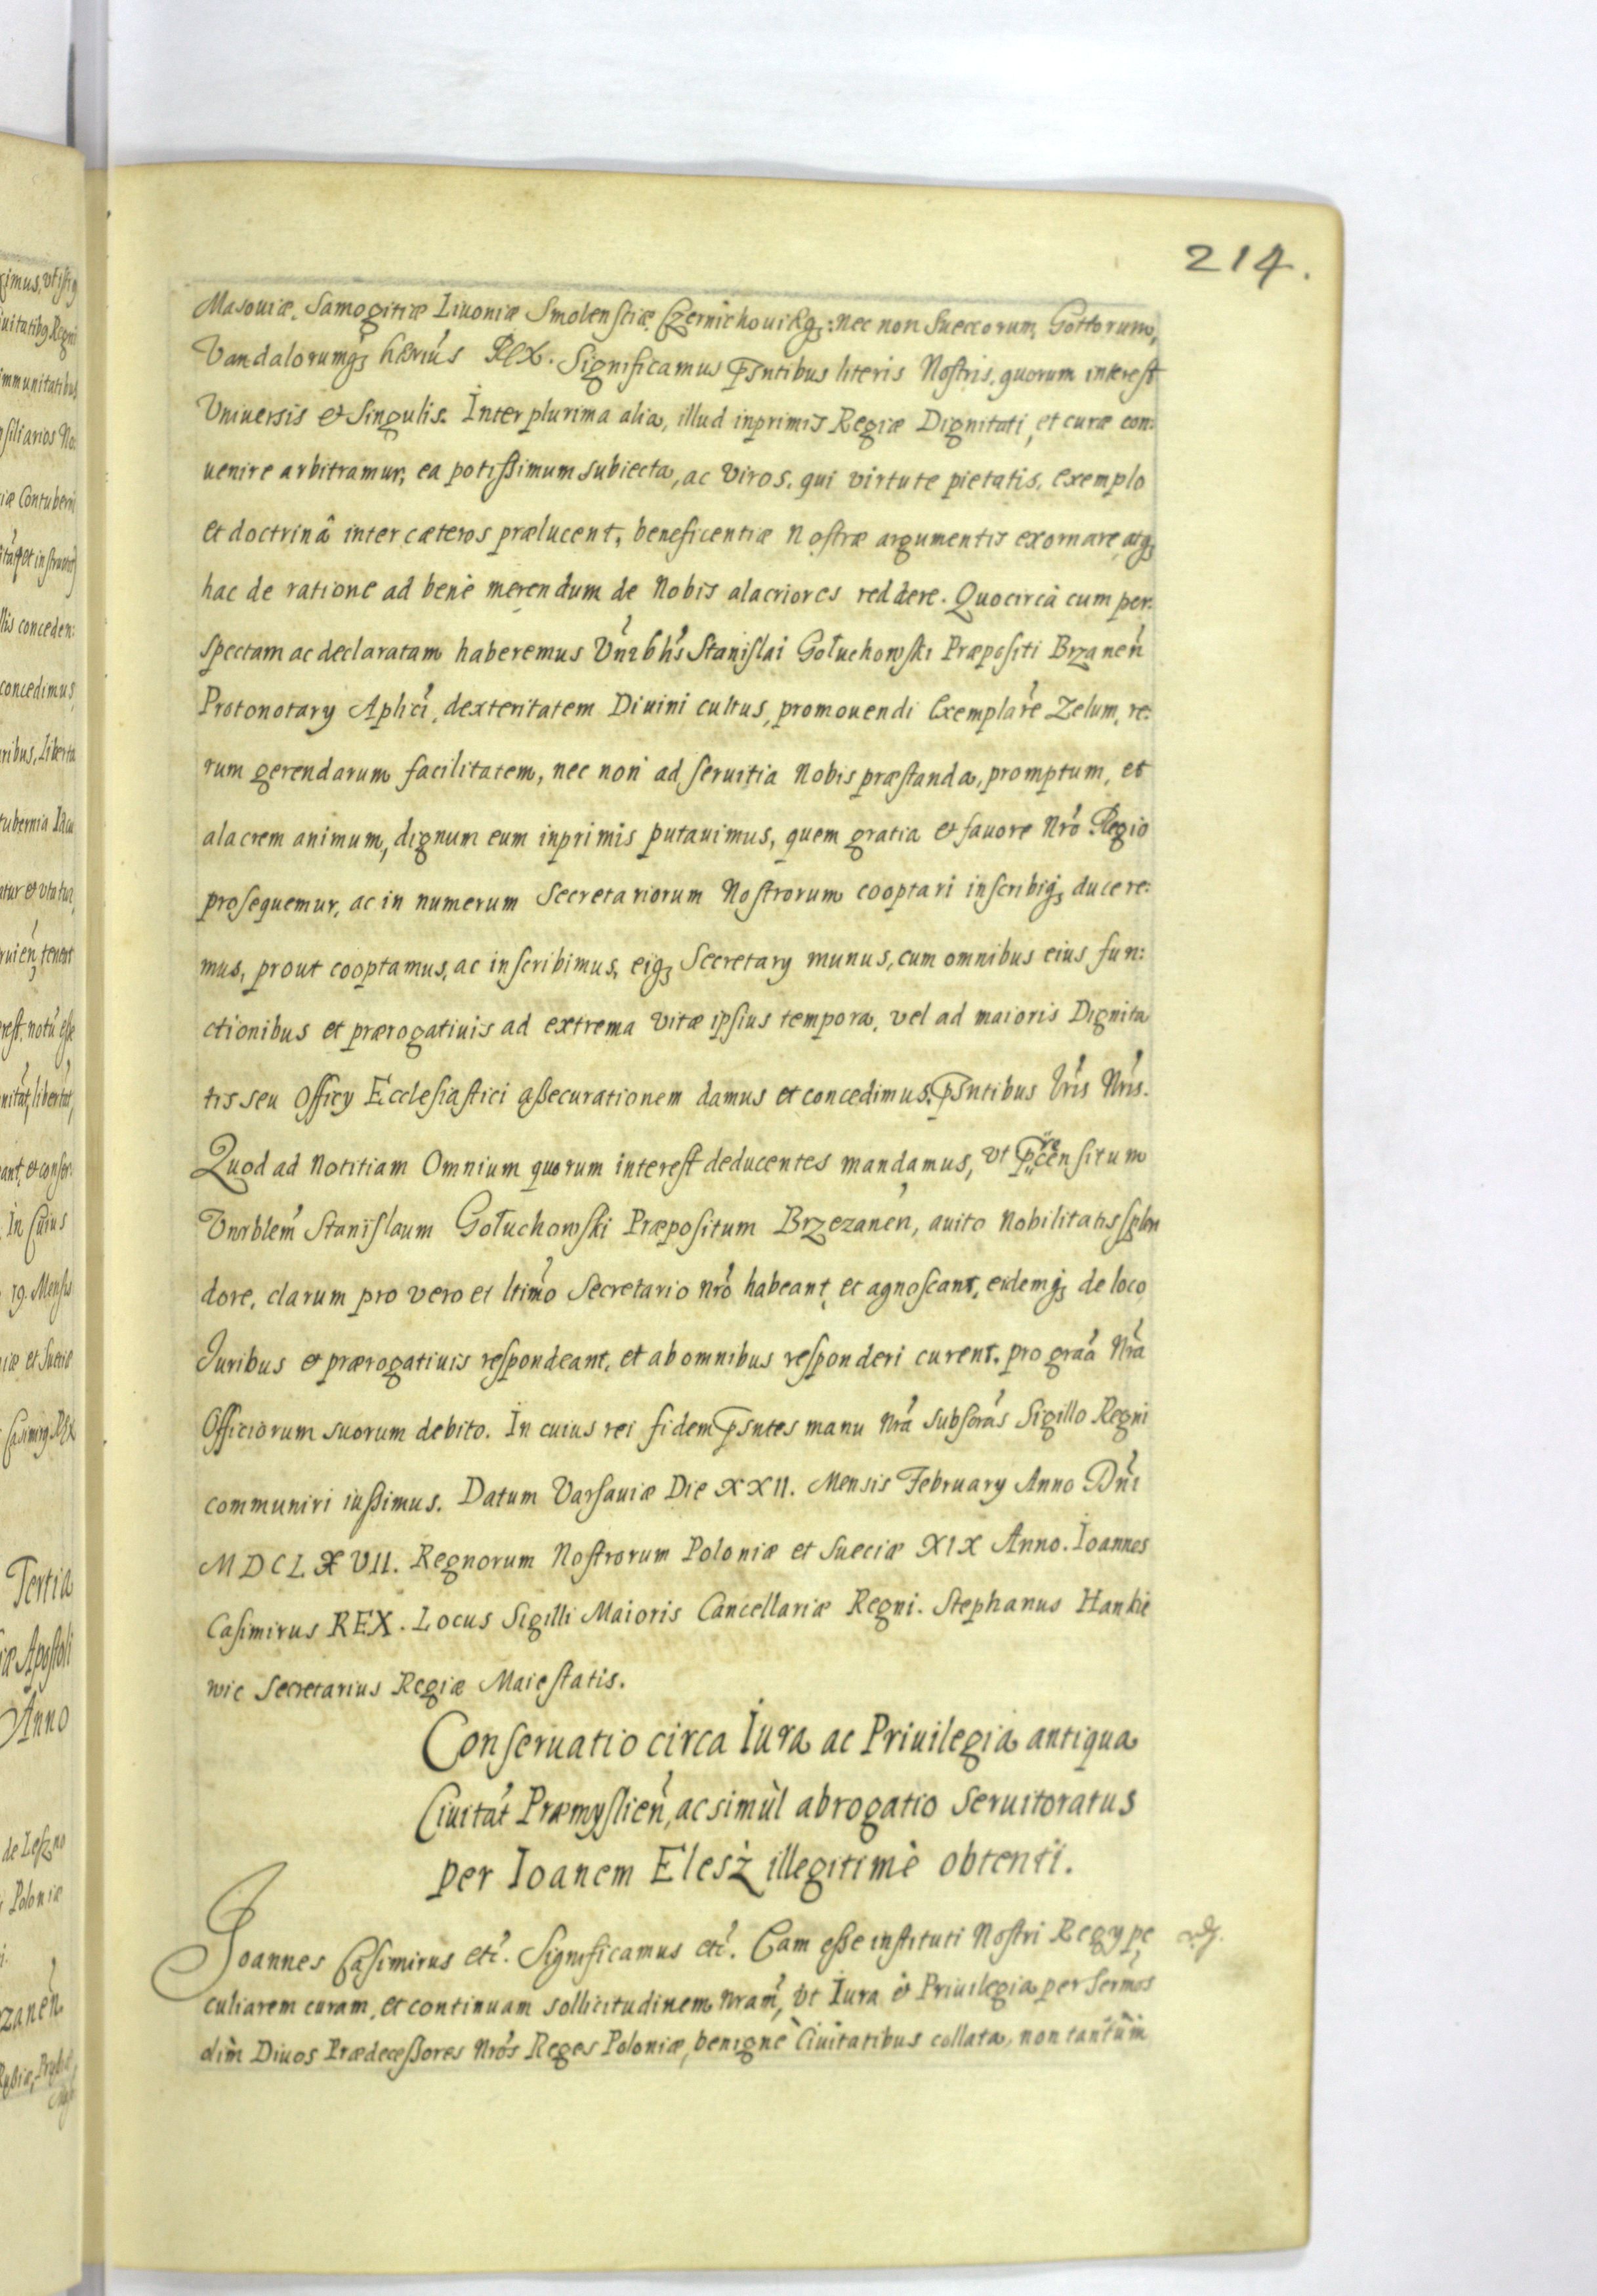 214.
Masouiæ, Samogitiæ Liuoniæ Smolensciæ Czernichouieq; nec non Sueccorum, Gottorum,
Vandalorumq; hærius REX. Significamus pñtibus literis Nostris, quorum interest
Vniuersis et Singulis. Inter plurima alia, illud inprimis Regiæ Dignitati, et curæ con:
uenire arbitramur, ea potissimum subiecta, ac viros, qui virtute pietatis, exemplo
et doctrinâ inter cæteros prælucent, beneficentiæ Nostræ argumentis exornare, atq;
hac de ratione ad benè merendum de Nobis alacriores reddere. Quocircà cum per:
spectam ac declaratam haberemus Vnrbhs Stanislai Gołuchowski Præpositi Brzanen
Protonotary Aplici, dexteritatem Diuini cultus, promouendi Exemplare Zelum, re:
rum gerendarum facilitatem, nec non ad seruitia Nobis præstanda, promptum, et
alacrem animum, dignum eum inprimis putauimus, quem gratia et fauore Nro Regio
prosequemur, ac in numerum Secretariorum Nostrorum cooptari inscribiq; ducere:
mus, prout cooptamus, ac inscribimus, eiq; Secretary munus, cum omnibus eius fun:
ctionibus et prærogatiuis ad extrema vitæ ipsius tempora, vel ad maioris Dignita
tis seu Officy Ecclesiastici assecurationem damus et concedimus, psntibus lris Nris.
Quod ad Notitiam Omnium quorum interest deducentes mandamus, vt precensitum
Vnrblem Stanislaum Gołuchowski Præpositum Brzezanen, auito Nobilitatis splen
dore, clarum pro vero et ltimo Secretario nro habeant, et agnoscant, eidemq; de loco
Iuribus et prærogatiuis respondeant, et ab omnibus responderi curent, pro graa Nra
Officiorum suorum debito. In cuius rei fidem psntes manu nra subscras Sigillo Regni
communiri iussimus. Datum Varsauiæ Die XXII. Mensis February Anno Dni
MDCLXVII. Regnorum Nostrorum Poloniæ et Sueciæ XIX Anno. Ioannes
Casimirus REX. Locus Sigilli Maioris Cancellariæ Regni. Stephanus Hankie
wic Secretarius Regiæ Maiestatis.
Conseruatio circa Iura ac Priuilegia antiqua
Ciuitat Præmyslien, ac simùl abrogatio Seruitoratus
per Ioanem Elesż illegitimè obtenti.
Ioannes Casimirus etc. Significamus etc. Eam esse instituti Nostri Regy pe
culiarem curam, et continuam sollicitudinem nram, vt Iura et Priuilegia per Sermos
olim Diuos Prædecessores Nros Reges Poloniæ, benignè Ciuitatibus collata, non tantùm